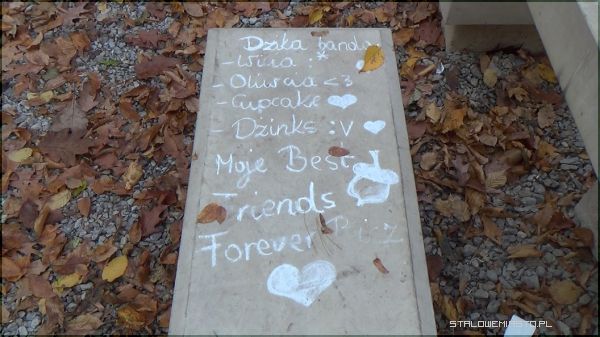 Dzika banda
- Wika :*
- Oliwcia <3
- Cupcake
- Dżinks :V
Moje Best
Friends
Forever
STALOWEMIASTO.PL